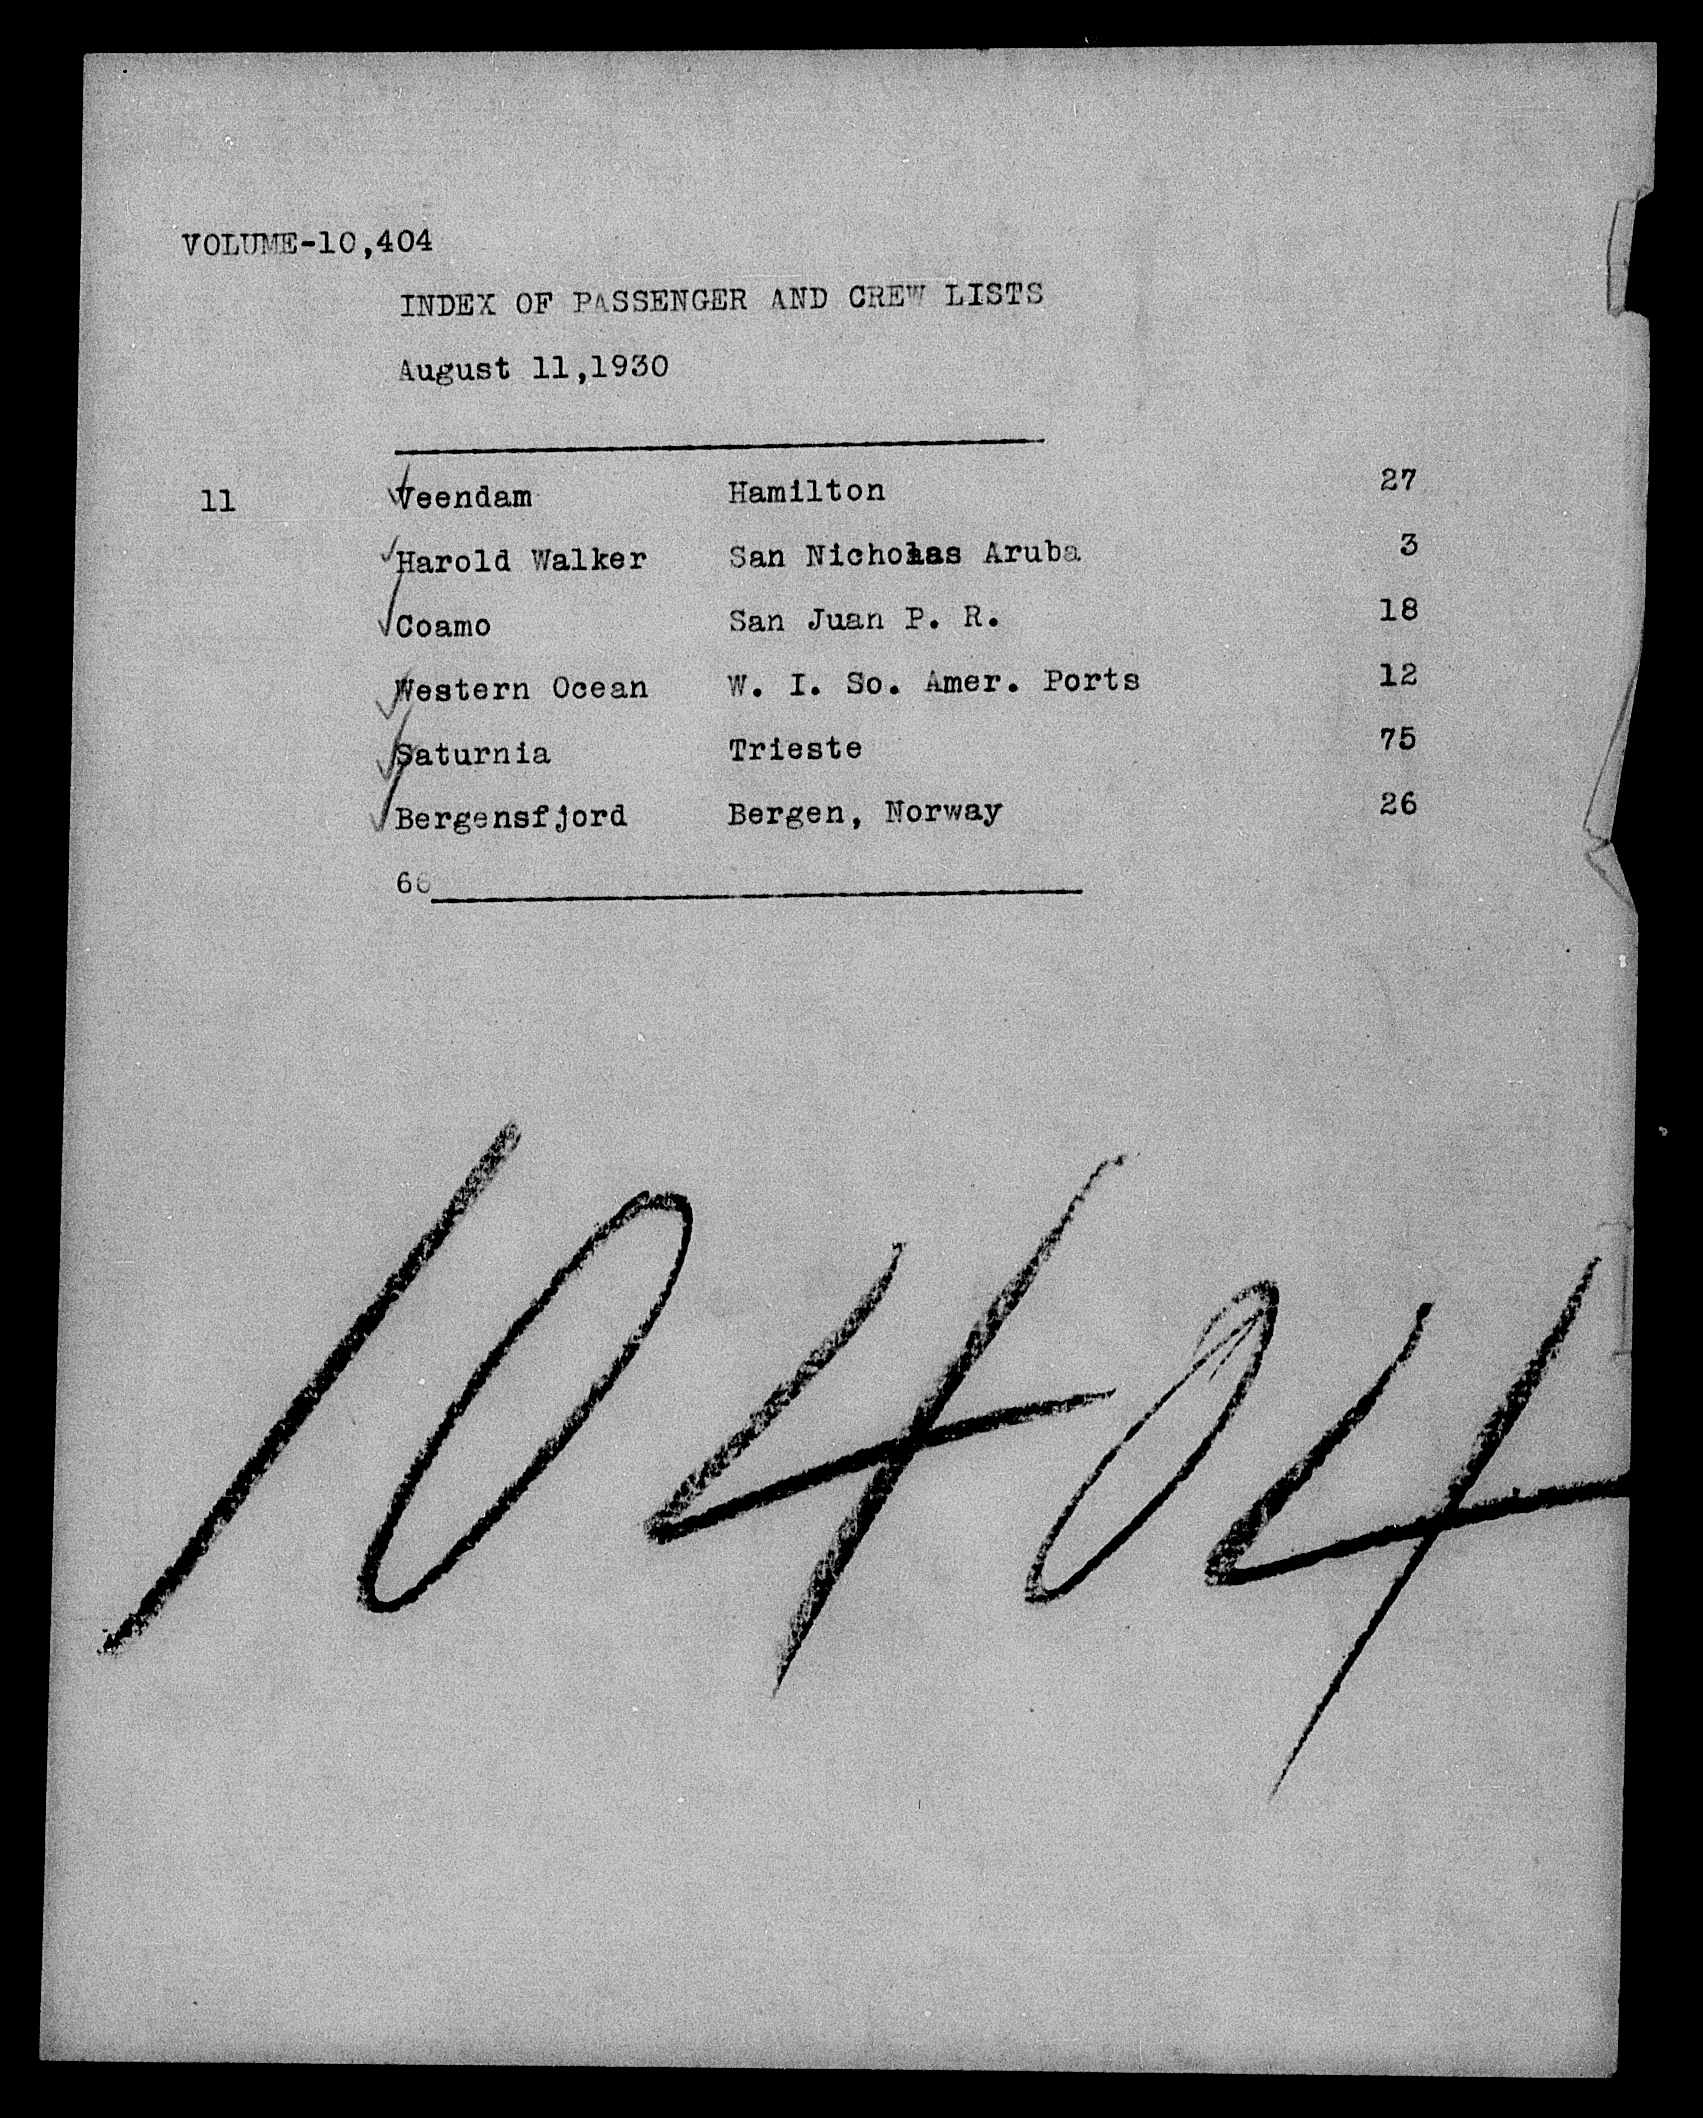 VOLUME-10,404
INDEX OF PASSENGER AND CREW LISTS
August 11,1930
11 Veendam Hamilton 27
Harold Walker San Nicholas Aruba 3
Coamo San Juan P. R. 18
Western Ocean W. I. So. Amer. Ports 12
Saturnia Trieste 75
Bergensfjord Bergen, Norway 26
66
10404